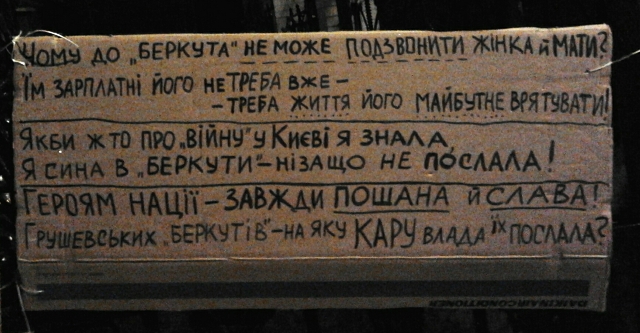 Чому до „Беркута“ не може подзвонити жінка й мати?
Їм зарплатні його не треба вже –
– треба життя його майбутнє врятувати!
Якби ж то про „війну“ у Києві я знала,
Я сина в „Беркути“ – нізащо не послала!
Героям нації – завжди пошана й слава!
Грушевських „Беркутів“ – на яку кару влада їх послала?
DAIKIN AIR CONDITIONER